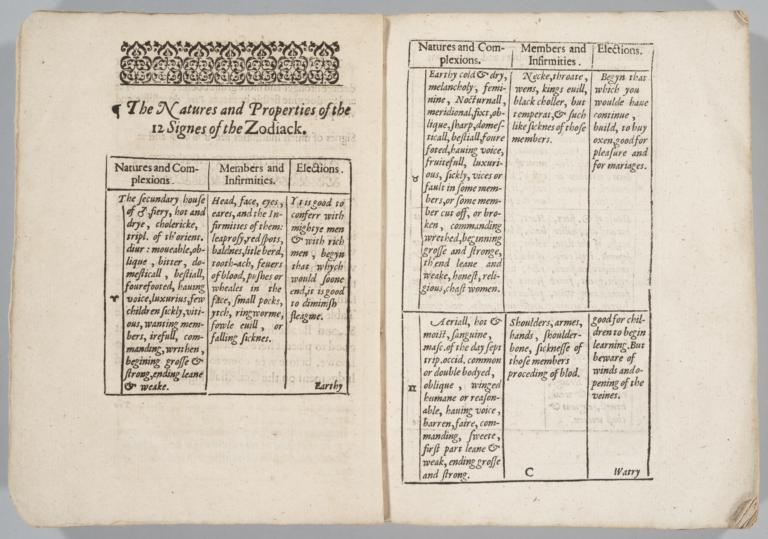 ¶ The Natures and Properties of the
12 Signes of the Zodiack.
Natures and Com-
plexions.
The secundary house
of ♂. fiery, hot and
drye, cholericke,
tripl. of th'orient.
diur: moueable, ob-
lique, bitter, do-
mesticall, bestiall,
fourefooted, hauing
♈ voice, luxurius, few
children sickly, viti-
ous, wanting mem-
bers, irefull, com-
manding, writhen,
begining grosse &
strong, ending leane
& weake.
Members and
Infirmities.
Head, face, eyes,
eares, and the In-
firmities of them:
leaprosy, red spots,
baldnes, litle berd,
tooth-ach, feuers
of blood, pushes or
wheales in the
face, small pocks,
ytch, ringworme,
fowle euill, or
falling sicknes.
Elections.
Yt is good to
conferr with
mightye men
& with rich
men, begyn
that whych
would soone
end, it is good
to diminish
fleagme.
Earthy
Natures and Com-
plexions.
Members and
Infirmities.
Elections.
Earthy cold & dry,
melancholy, femi-
nine, Nocturnall,
meridional, fixt, ob-
lique, sharp, domes-
ticall, bestiall, foure
footed, hauing voice,
♉ fruitefull, luxuri-
ous, sickly, vices or
fault in some mem-
bers, or some mem-
ber cut off, or bro-
ken, commanding
wrethed, beginning
grosse and stronge,
th'end leane and
weake, honest, reli-
gious, chast women.
Necke, throate,
wens, kings euill,
black choller, but
temperat, & such
like sicknes of those
members.
Begyn that
which you
woulde haue
continue,
build, to buy
oxen, good for
pleasure and
for mariages.
Aeriall, hot &
moist, sanguine,
masc. of the day sept
trip. occid, common
or double bodyed,
oblique, winged
♊ humane or reason-
able, hauing voice,
barren, faire, com-
manding, sweete,
first part leane &
weak, ending grosse
and strong.
Shoulders, armes,
hands, shoulder-
bone, sicknesse of
those members
proceding of blod.
good for chil-
dren to begin
learning. But
beware of
winds and o-
pening of the
veines.
C
Watry